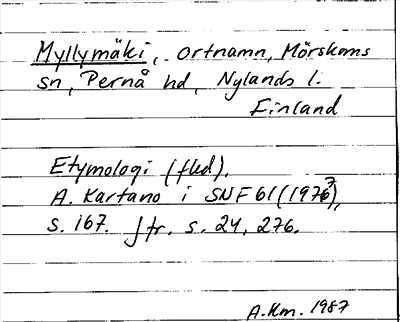 Myllymäki, ortnamn, Mörskoms
sn, Pernå hd, Nylands l.
Finland
Etymologi (fled).
A. Kartano i SNF 61 (1977),
s. 167. Jfr. s. 24, 276.
A.Km. 1987